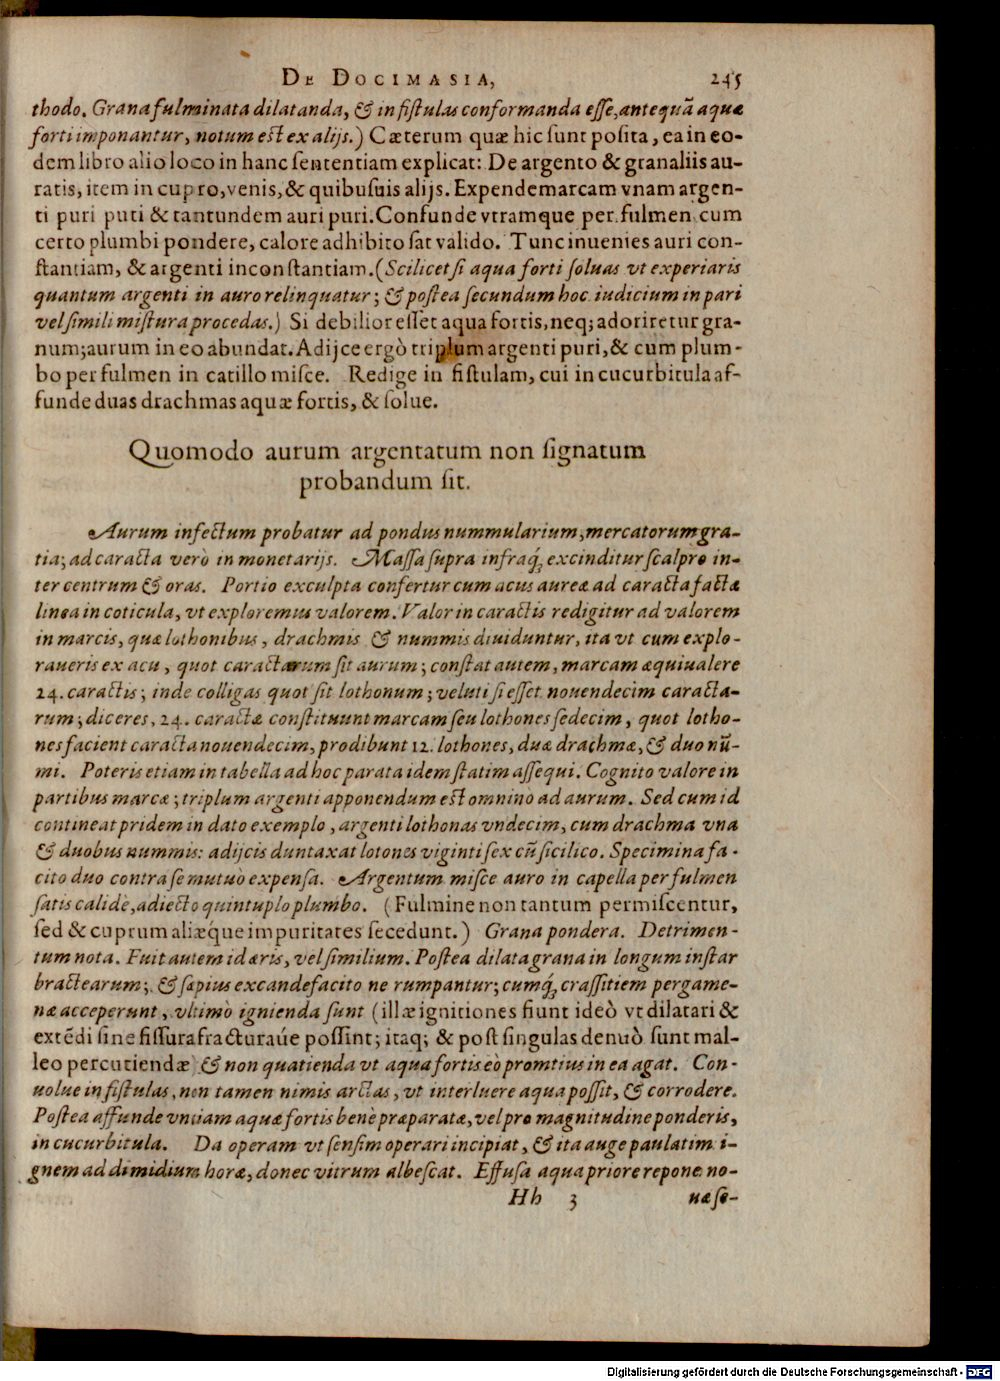 DE DOCIMASIA, 245
thodo. Grana fulminata dilatanda, & in fistulas conformanda esse, antequã aquæ
forti imponantur, notum est ex alijs.) Cæterum quæ hic sunt posita, ea in eo-
dem libro alio loco in hanc sententiam explicat: De argento & granaliis au-
ratis, item in cupro, venis, & quibusuis alijs. Expende marcam vnam argen-
ti puri puti & tantundem auri puri. Confunde vtramque per fulmen cum
certo plumbi pondere, calore adhibito sat valido. Tunc inuenies auri con-
stantiam, & argenti inconstantiam. (Scilicet si aqua forti soluas vt experiaris
quantum argenti in auro relinquatur; & postea secundum hoc iudicium in pari
vel simili mistura procedas.) Si debilior esset aqua fortis, neq; adoriretur gra-
num; aurum in eo abundat. Adijce ergò triplum argenti puri, & cum plum-
bo per fulmen in catillo misce. Redige in fistulam, cui in cucurbitula af-
funde duas drachmas aquæ fortis, & solue.
Quomodo aurum argentatum non signatum
probandum sit.
Aurum infectum probatur ad pondus nummularium, mercatorum gra-
tia; ad caracta verò in monetarijs. Massa supra infraq́; excinditur scalpro in-
ter centrum & oras. Portio exculpta confertur cum acus aureæ ad caracta factæ
linea in coticula, vt exploremus valorem. Valor in caractis redigitur ad valorem
in marcis, quæ lothonibus, drachmis & nummis diuiduntur, ita vt cum explo-
raueris ex acu, quot caractarum sit aurum; constat autem, marcam æquiualere
24. caractis; inde colligas quot sit lothonum; veluti si esset nouendecim caracta-
rum; diceres, 24. caractæ constituunt marcam seu lothones sedecim, quot lotho-
nes facient caracta nouendecim, prodibunt 12. lothones, duæ drachmæ, & duo nũ-
mi. Poteris etiam in tabella ad hoc parata idem statim assequi. Cognito valore in
partibus marcæ; triplum argenti apponendum est omnino ad aurum. Sed cum id
contineat pridem in dato exemplo, argenti lothonas vndecim, cum drachma vna
& duobus nummis: adijcis duntaxat lotones viginti sex cũ sicilico. Specimina fa-
cito duo contra se mutuò expensa. Argentum misce auro in capella per fulmen
satis calidè, adiecto quintuplo plumbo. (Fulmine non tantum permiscentur,
sed & cuprum aliæq́ue impuritates secedunt.) Grana pondera. Detrimen-
tum nota. Fuit autem id æris, vel similium. Postea dilata grana in longum instar
bractearum; & sæpius excandefacito ne rumpantur; cumq́; crassitiem pergame-
næ acceperunt, vltimò ignienda sunt (illæ ignitiones fiunt ideò vt dilatari &
extẽdi sine fissura fracturaúe possint; itaq; & post singulas denuò sunt mal-
leo percutiendæ) & non quatienda vt aqua fortis eò promtius in ea agat. Con-
uolue in fistulas, non tamen nimis arctas, vt interluere aqua possit, & corrodere.
Postea affunde vnciam aquæ fortis benè præparatæ, vel pro magnitudine ponderis,
in cucurbitula. Da operam vt sensim operari incipiat, & ita auge paulatim i-
gnem ad dimidium horæ, donec vitrum albescat. Effusa aqua priore repone no-
Hh 3 uæ se-
Digitalisierung gefördert durch die Deutsche Forschungsgemeinschaft - DFG